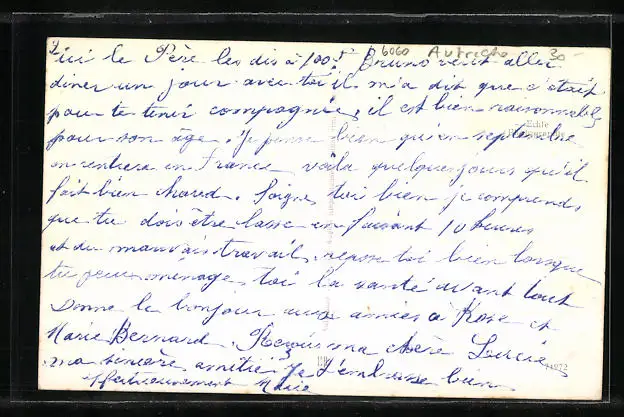 6060 Autriche 30
ici le Père les dis à 100 Bruno veut aller
diner un jour avec toi il m'a dit que c'etait
pour te tenir compagnie, il est bien raisonnable
pour son âge. Je pense bien qu'en septembre
on rentrera en France, voila quelques jours qu'il
fait bien chaud. Soigne toi bien je comprends
que tu dois etre lasse en faisant 10 heures
et du mauvais travail, repose toi bien lorsque
tu peux, ménage toi la santé avant tout
Donne le bonjour aux amies à Rose et
Marie Bernard. Reçois ma chère Lucie
ma sincère amitié Je t'embrasse bien
affectueusement Marie
Echte